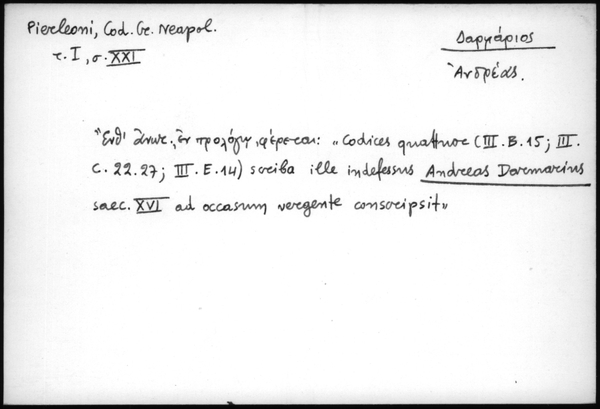 Pierleoni, Cod. Gr. Neapol.
τ. I, σ. XXI
Δαρμάριος
Ἀνδρέας.
Ἔνθ' ἄνωτ., ἐν προλόγῳ, φέρεται: „Codices quattuor (III. B. 15; III.
C. 22. 27; III. E. 14) scriba ille indefessus Andreas Darmarius
saec. XVI ad occasum vergente conscripsit„